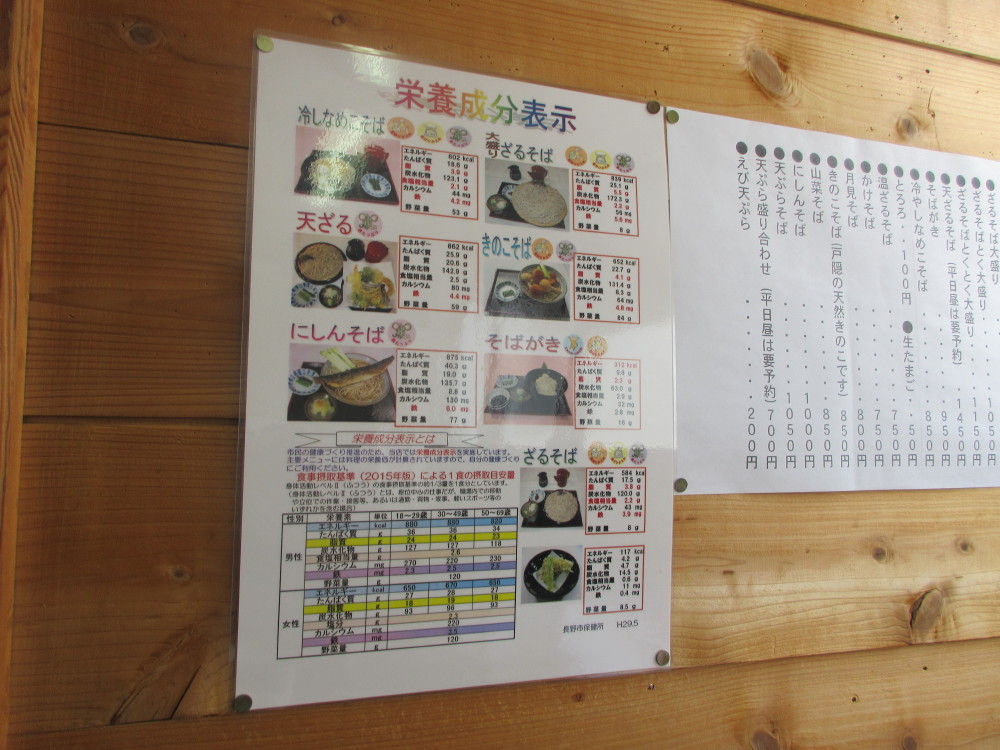 栄養成分表示
冷しなめこそば
エネルギー 602 kcal
たんぱく質 18.6 g
脂質 3.9 g
炭水化物 123.1 g
食塩相当量 2.1 g
カルシウム 44 mg
鉄 4.2 mg
野菜量 53 g
大盛り ざるそば
エネルギー 839 kcal
たんぱく質 25.1 g
脂質 5.5 g
炭水化物 172.3 g
食塩相当量 2.2 g
カルシウム 56 mg
鉄 5.6 mg
野菜量 6 g
天ざる
エネルギー 862 kcal
たんぱく質 25.9 g
脂質 20.6 g
炭水化物 142.9 g
食塩相当量 2.5 g
カルシウム 80 mg
鉄 4.4 mg
野菜量 59 g
きのこそば
エネルギー 652 kcal
たんぱく質 22.7 g
脂質 4.1 g
炭水化物 131.4 g
食塩相当量 8.3 g
カルシウム 64 mg
鉄 4.6 mg
野菜量 84 g
にしんそば
エネルギー 875 kcal
たんぱく質 40.3 g
脂質 19.0 g
炭水化物 135.7 g
食塩相当量 8.8 g
カルシウム 130 mg
鉄 6.0 mg
野菜量 77 g
そばがき
エネルギー 312 kcal
たんぱく質 9.8 g
炭水化物 63.0 g
食塩相当量 2.9 g
カルシウム 32 mg
鉄 2.6 mg
野菜量 16 g
栄養成分表示とは
市民の健康づくり推進のため、当店では栄養成分表示を実施しています。
主要メニューには料理の栄養価が計算されていますので、自分の健康づくり
にご利用ください。
食事摂取基準(2015年版)による1食の摂取目安量
身体活動レベルⅡ(ふつう)の食事摂取基準の約1/3量を1食としています。
(身体活動レベルⅡ(ふつう)とは、座位中心の仕事だが、職場内での移動
や立位での作業・接客等、あるいは通勤・買物・家事、軽いスポーツ等の
いずれかを含む場合)
性別 栄養素 単位 18～29歳 30～49歳 50～69歳
男性
エネルギー kcal 880 880 820
たんぱく質 g 36 36 34
脂質 g 24 24 23
炭水化物 g 127 127 118
食塩相当量 g 2.6
カルシウム mg 270 220 230
鉄 mg 2.3 2.5 2.5
野菜量 g 120
女性
エネルギー kcal 650 670 650
たんぱく質 g 27 28 27
脂質 g 18 19 18
炭水化物 g 93 96 93
塩分 g 2.3
カルシウム mg 220
鉄 mg 3.5
野菜量 g 120
ざるそば
エネルギー 584 kcal
たんぱく質 17.5 g
脂質 3.8 g
炭水化物 120.0 g
食塩相当量 2.2 g
カルシウム 43 mg
鉄 3.9 mg
野菜量 6 g
エネルギー 117 kcal
たんぱく質 4.2 g
脂質 4.7 g
炭水化物 14.5 g
食塩相当量 0.6 g
カルシウム 11 mg
鉄 0.4 mg
野菜量 8.5 g
長野市保健所 H29.5
●ざるそば大盛り
●ざるそばとく大盛り
●ざるそばとくとく大盛り 1450円
●天ざるそば(平日昼は要予約)
●そばがき
●冷やしなめこそば 850円
●とろろ・・100円 ●生たまご
●温ざるそば 750円
●かけそば 750円
●月見そば 800円
●きのこそば(戸隠の天然きのこです)850円
●山菜そば 850円
●にしんそば 1050円
●天ぷらそば 1050円
●天ぷら盛り合わせ (平日昼は要予約)700円
●えび天ぷら 200円